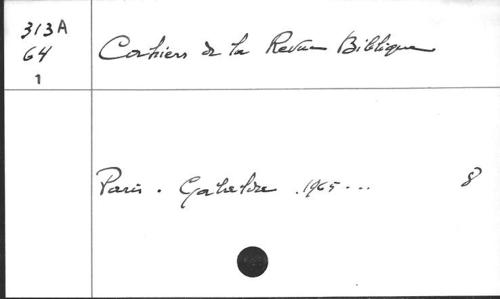 313A
64
1
Cahiers de la Revue Biblique
Paris. Gabalda .1965... 8